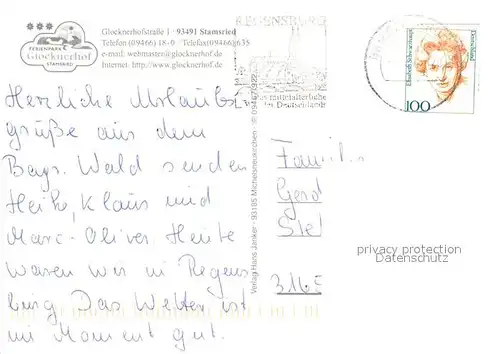 FERIENPARK
Glocknerhof
STAMSRIED
Glocknerhofstraße 1 · 93491 Stamsried
Telefon (09466) 18-0 Telefax(09466)635
e-mail: webmaster@glocknerhof.de
Internet: http://www.glocknerhof.de
REGENSBURG
mittelalterliche
Deutschlands
Elisabeth Schwarzhaupt
Deutschland
100
Herzliche Urlaubs
grüße aus dem
Bayr. Wald senden
Heike, Klaus und
Marc-Oliver. Heute
waren wir in Regens
burg Das Wetter ist
im Moment gut.
Verlag Hans Janker · 93185 Michelsneukirchen · ☏ 09467/922
Famili
Gerd
Ste
316
privacy protection
Datenschutz